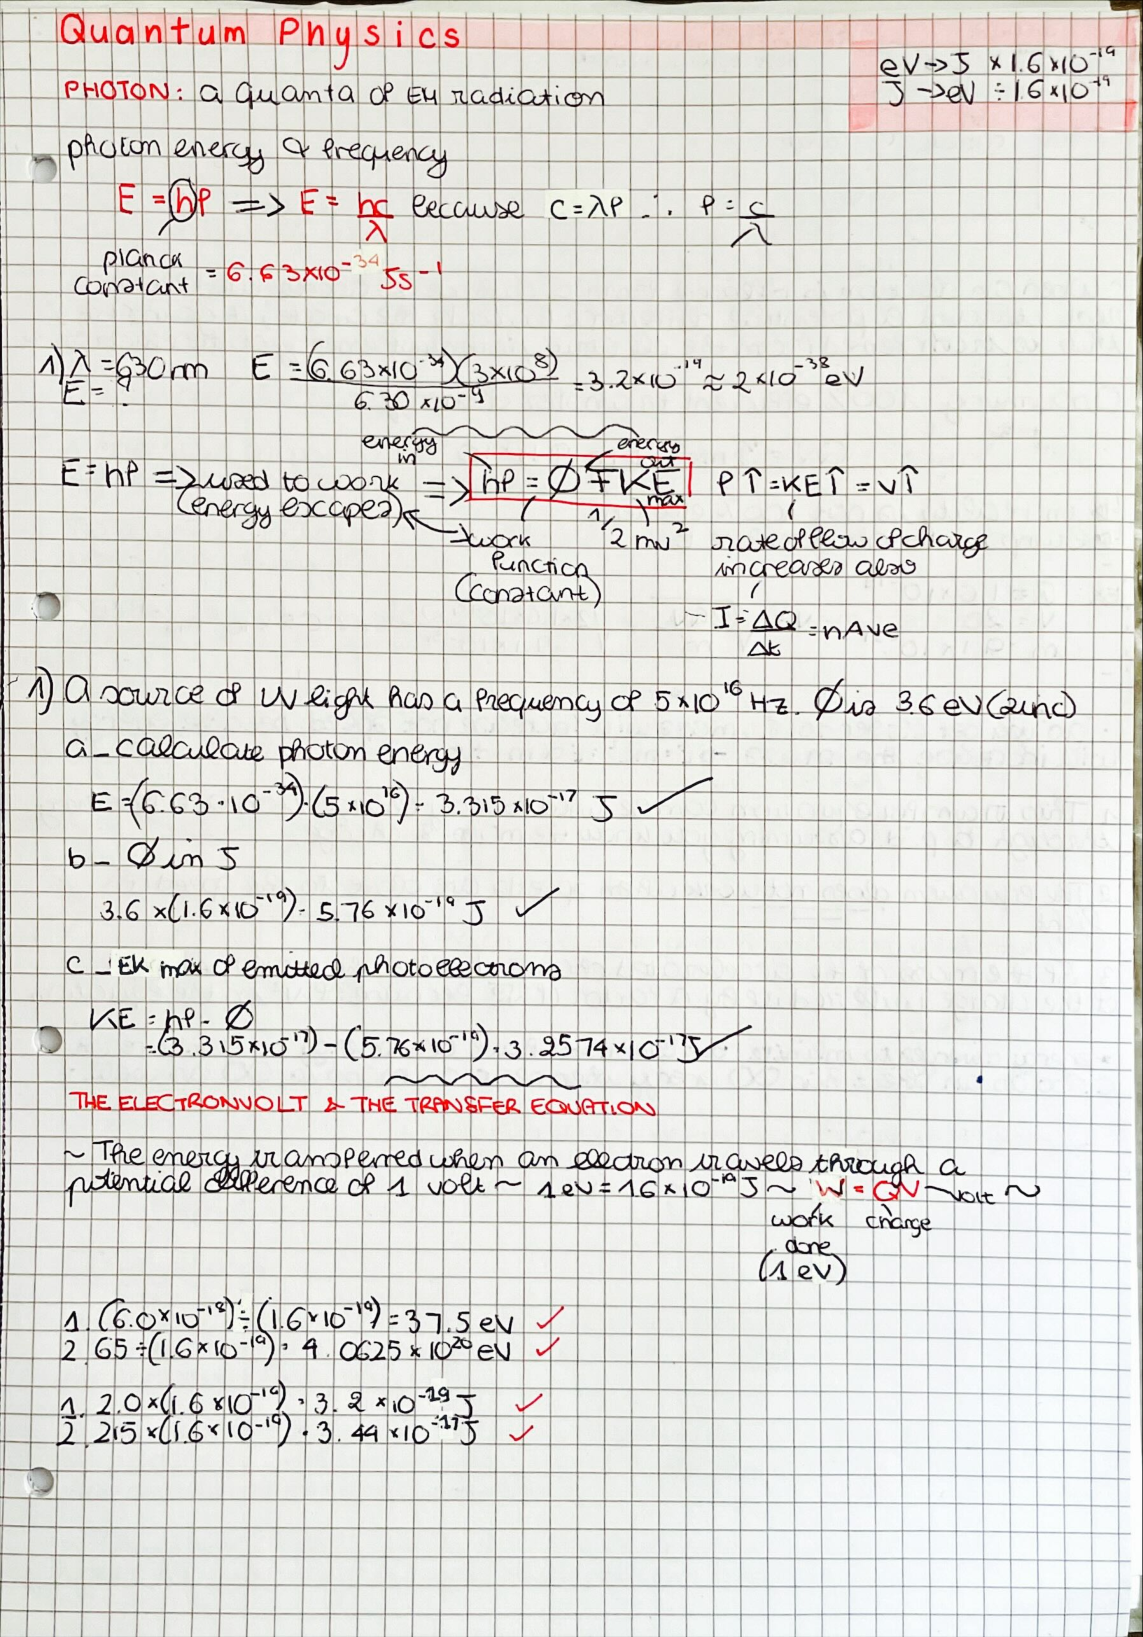 Quantum Physics
eV→J ×1.6×10⁻¹⁹
J→eV ÷1.6×10⁻¹⁹
PHOTON: a quanta of EM radiation
photon energy & frequency
E = hf => E = hc/λ because c=λf ∴ f = c/λ
planck constant = 6.63×10⁻³⁴ Js⁻¹
1) λ = 630nm E = (6.63×10⁻³⁴)(3×10⁸) / 6.30×10⁻⁹ = 3.2×10⁻¹⁹ ≈ 2×10⁻³⁸ eV
E = ?
energy in energy out
E = hf => used to work => hf = Ø + KE max f↑ = KE↑ = v↑
(energy escapes) → work function (constant) 1/2 mv² rate of flow of charge increases also
- I = ΔQ/Δt = nAve
1) A source of UV light has a frequency of 5×10¹⁶ Hz. Ø is 3.6 eV (zinc)
a - calculate photon energy
E = (6.63·10⁻³⁴)·(5×10¹⁶) = 3.315×10⁻¹⁷ J ✓
b - Ø in J
3.6 ×(1.6×10⁻¹⁹) = 5.76×10⁻¹⁹ J ✓
c - EK max of emitted photoelectrons
KE = hf - Ø
=(3.315×10⁻¹⁷) - (5.76×10⁻¹⁹) = 3.2574×10⁻¹⁷J ✓
THE ELECTRONVOLT & THE TRANSFER EQUATION
~ The energy transferred when an electron travels through a
potential difference of 1 volt ~ 1eV = 1.6×10⁻¹⁹ J ~ W = QV - volt ~
work done (1 eV) charge
1. (6.0×10⁻¹⁸) ÷ (1.6×10⁻¹⁹) = 37.5 eV ✓
2. 65 ÷ (1.6×10⁻¹⁹) = 4.0625×10²⁰ eV ✓
1. 2.0×(1.6×10⁻¹⁹) = 3.2×10⁻¹⁹ J ✓
2. 215×(1.6×10⁻¹⁹) = 3.44×10⁻¹⁷ J ✓